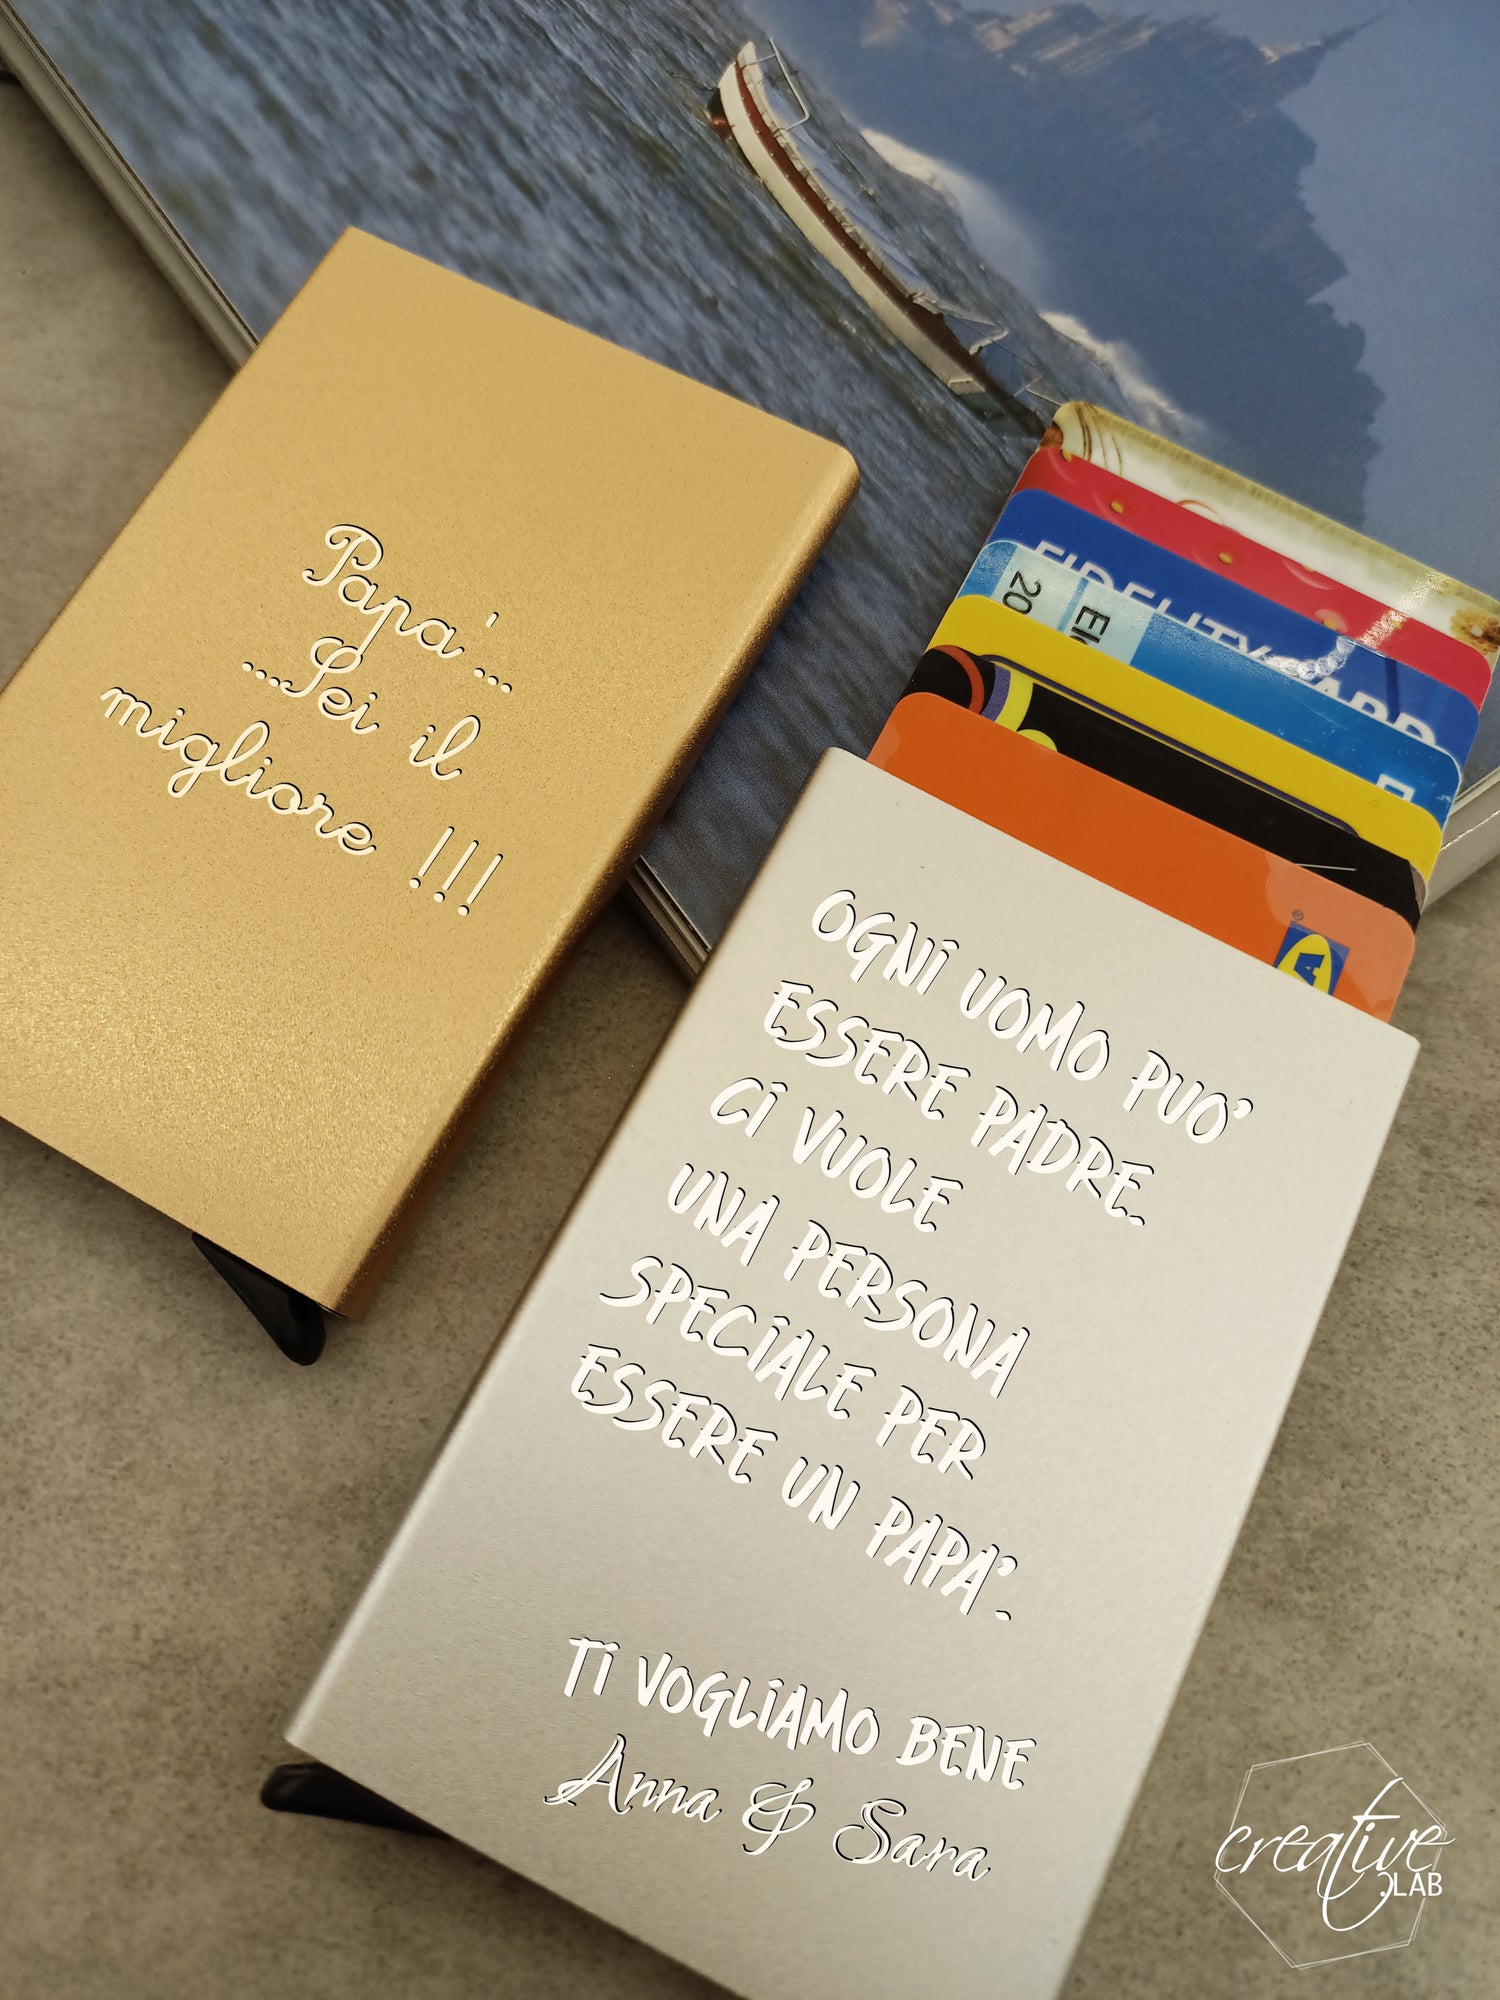 Papa'...
...Sei il
migliore !!!
FIDELITY CARD
20
®
OGNI UOMO PUO'
ESSERE PADRE.
CI VUOLE
UNA PERSONA
SPECIALE PER
ESSERE UN PAPA'.
TI VOGLIAMO BENE
Anna & Sara
creative
.LAB